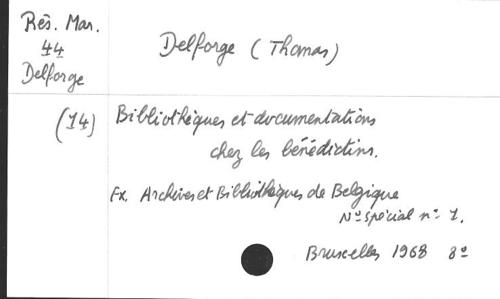 Rès. Mar.
44
Delforge
Delforge (Thomas)
(14) Bibliothèques et documentations
chez les bénédictins.
Ex. Archives et Bibliothèques de Belgique
No spécial no 1.
Bruxelles 1968 8o